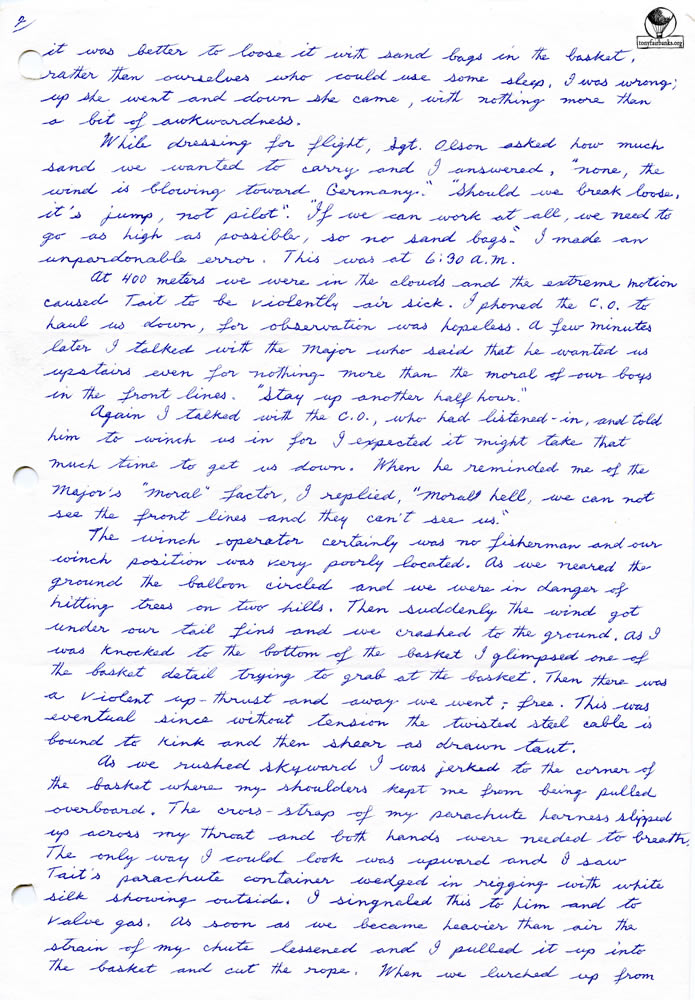 2/
tonyfairbanks.org
it was better to loose it with sand bags in the basket,
rather then ourselves who could use some sleep. I was wrong;
up she went and down she came, with nothing more than
a bit of awkwardness.
While dressing for flight, Sgt. Olson asked how much
sand we wanted to carry and I answered, "none, the
wind is blowing toward Germany." "Should we break loose,
it's jump, not pilot". "If we can work at all, we need to
go as high as possible, so no sand bags." I made an
unpardonable error. This was at 6:30 A.M.
At 400 meters we were in the clouds and the extreme motion
caused Tait to be violently air sick. I phoned the C.O. to
haul us down, for observation was hopeless. A few minutes
later I talked with the Major who said that he wanted us
upstairs even for nothing more than the moral of our boys
in the front lines. "Stay up another half hour."
Again I talked with the C.O., who had listened-in, and told
him to winch us in for I expected it might take that
much time to get us down. When he reminded me of the
Major's "moral" factor, I replied, "Moral hell, we can not
see the front lines and they can't see us."
The winch operator certainly was no fisherman and our
winch position was very poorly located. As we neared the
ground the balloon circled and we were in danger of
hitting trees on two hills. Then suddenly the wind got
under our tail fins and we crashed to the ground. As I
was knocked to the bottom of the basket I glimpsed one of
the basket detail trying to grab at the basket. Then there was
a violent up-thrust and away we went; free. This was
eventual since without tension the twisted steel cable is
bound to kink and then shear as drawn taut.
As we rushed skyward I was jerked to the corner of
the basket where my shoulders kept me from being pulled
overboard. The cross-strap of my parachute harness slipped
up across my throat and both hands were needed to breath.
The only way I could look was upward and I saw
Tait's parachute container wedged in rigging with white
silk showing outside. I singnaled this to him and to
valve gas. As soon as we became heavier than air the
strain of my chute lessened and I pulled it up into
the basket and cut the rope. When we lurched up from